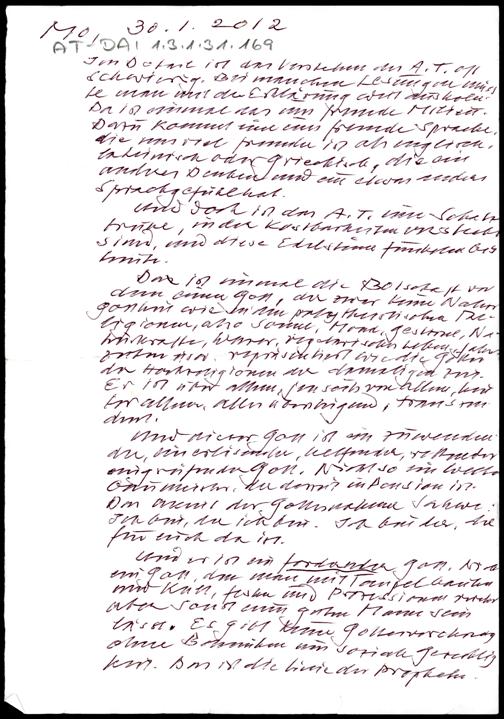 Mo, 30.1.2012
AT-DAI 1.3.1.31.169
Im Detail ist das Verstehen des A.T. oft
schwierig. Bei manchen Lesungen müss
te man mit der Erklärung weit ausholen.
Da ist einmal das uns fremde Milieu.
Dazu kommt eine uns fremde Sprache,
die uns viel fremder ist als englisch,
lateinisch oder griechisch, die ein
anderes Denken und ein etwas anderes
Sprachgefühl hat.
Und doch ist das A.T. eine Schatz
truhe, in der Kostbarkeiten versteckt
sind, und diese Edelsteine funkeln bis
heute.
Da ist einmal die Botschaft von
dem einen Gott, der zwar keine Natur
gottheit wie in den polytheistischen Re-
ligionen, also Sonne, Mond, Gestirne, Na
turkräfte, Wasser, vegetarisches Leben, Jahres
zeiten usw. repräsentiert wie die Götter
der Hochreligionen der damaligen Zeit.
Er ist über allem, jenseits von allem, hin
ter allem, alles übersteigend, transzen
dent.
Und dieser Gott ist ein zuwenden
der, ein erlösender, helfender, rettender
eingreifender Gott. Nicht so ein Welten
baumeister, der derzeit in Pension ist.
Das meint der Gottesname Jahwe:
Ich bin, der ich bin. Ich bin der, der
für euch da ist.
Und er ist ein fordernder Gott. Nicht
ein Gott, den man mit Tempel bauten
und Kult, Festen und Prozessionen verehrt
aber sonst einen guten Mann sein
lässt. Es gibt keine Gottesverehrung
ohne Bemühen um soziale Gerechtig
keit. Das ist die Linie der Propheten.